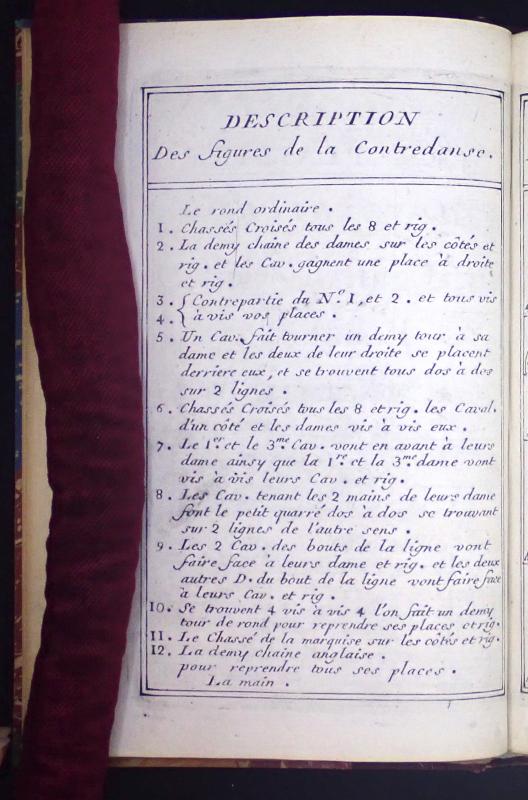 DESCRIPTION
Des figures de la Contredanse.
Le rond ordinaire.
1. Chassés Croisés tous les 8 et rig.
2. La demy chaine des dames sur les côtés et
rig. et les Cav. gagnent une place à droite
et rig.
3. { Contrepartie du N.º 1, et 2. et tous vis
4. { à vis vos places.
5. Un Cav. fait tourner un demy tour à sa
dame et les deux de leur droite se placent
derriere eux, et se trouvent tous dos à dos
sur 2 lignes.
6. Chassés Croisés tous les 8 et rig. les Caval.
d'un côté et les dames vis à vis eux.
7. Le 1.er et le 3.me Cav. vont en avant à leurs
dame ainsy que la 1.re et la 3.me dame vont
vis à vis leurs Cav. et rig.
8. Les Cav. tenant les 2 mains de leurs dame
font le petit quarré dos à dos se trouvant
sur 2 lignes de l'autre sens.
9. Les 2 Cav. des bouts de la ligne vont
faire face à leurs dame et rig. et les deux
autres D. du bout de la ligne vont faire face
à leurs Cav. et rig.
10. Se trouvent 4 vis à vis 4 l'on fait un demy
tour de rond pour reprendre ses places et rig.
11. Le Chassé de la marquise sur les côtés et rig.
12. La demy chaine anglaise.
pour reprendre tous ses places.
La main.